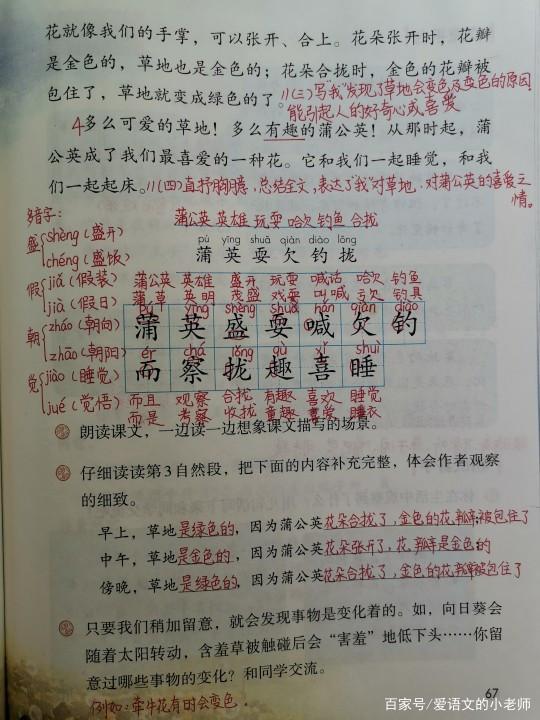 花就像我们的手掌，可以张开、合上。花朵张开时，花瓣
是金色的，草地也是金色的；花朵合拢时，金色的花瓣被
包住了，草地就变成绿色的了。//(三)写"我"发现了草地会变色及变色的原因，
能引起人的好奇心或喜爱
4多么可爱的草地！多么有趣的蒲公英！从那时起，蒲
公英成了我们最喜爱的一种花。它和我们一起睡觉，和我
们一起起床。//(四)直抒胸臆，总结全文，表达了"我"对草地、对蒲公英的喜爱之
情。
多音字：
蒲公英 英雄 玩耍 哈欠 钓鱼 合拢
盛 shèng（盛开）
chéng（盛饭）
pú yīng shuǎ qiàn diào lǒng
蒲 英 耍 欠 钓 拢
假 jiǎ（假装）
jià（假日）
蒲公英 英雄 盛开 玩耍 喊话 哈欠 钓鱼
蒲草 英明 茂盛 戏耍 叫喊 亏欠 钓具
pú yīng shèng shuǎ hǎn qiàn diào
蒲 英 盛 耍 喊 欠 钓
朝 cháo（朝向）
zhāo（朝阳）
ér chá lǒng qù xǐ shuì
而 察 拢 趣 喜 睡
觉 jiào（睡觉）
jué（觉悟）
而且 观察 合拢 有趣 喜欢 睡觉
而是 考察 收拢 童趣 喜爱 睡衣
朗读课文，一边读一边想象课文描写的场景。
仔细读读第3自然段，把下面的内容补充完整，体会作者观察
的细致。
早上，草地是绿色的，因为蒲公英花朵合拢了，金色的花瓣被包住了
中午，草地是金色的，因为蒲公英花朵张开了，花瓣是金色的
傍晚，草地是绿色的，因为蒲公英花朵合拢了，金色的花瓣被包住了
只要我们稍加留意，就会发现事物是变化着的。如，向日葵会
随着太阳转动，含羞草被触碰后会"害羞"地低下头……你留
意过哪些事物的变化？和同学交流。
例如：牵牛花有时会变色。
67
百家号/爱语文的小老师